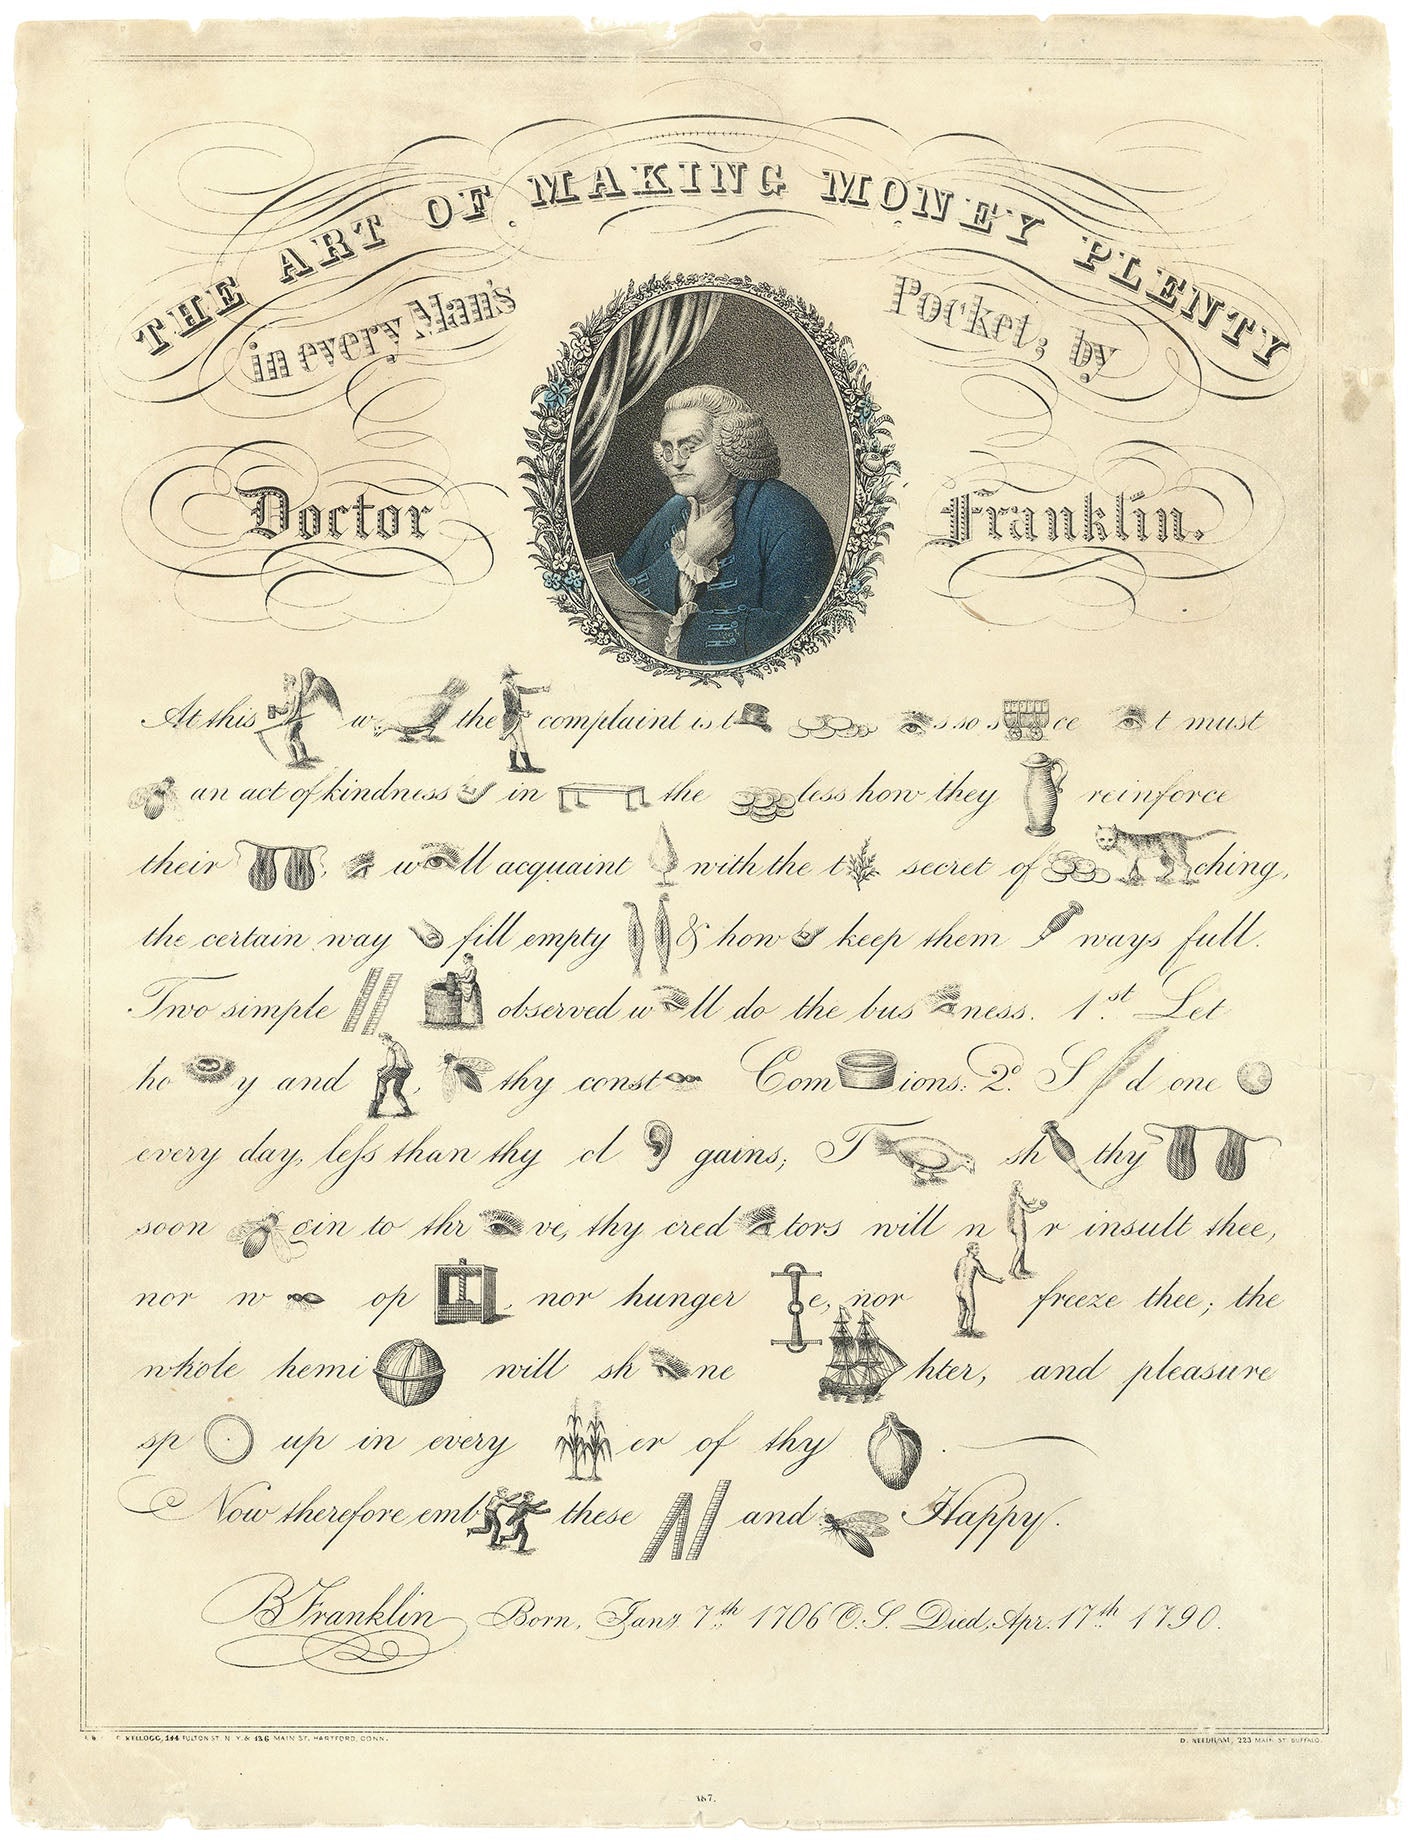 THE ART OF MAKING MONEY PLENTY
in every Man's Pocket; by
Doctor Franklin.
At this w the complaint is t s so s ce t must
an act of kindness in the less how they reinforce
their , w ll acquaint with the t secret of ching,
the certain way fill empty & how keep them ways full.
Two simple observed w ll do the bus ness. 1st. Let
ho y and , thy const Com ions: 2d. S d one
every day, less than thy cl gains; T sh thy
soon gin to thr ve, thy cred tors will n r insult thee,
nor w op , nor hunger e, nor freeze thee; the
whole hemi will sh ne hter, and pleasure
sp up in every er of thy .
Now therefore emb these and Happy.
B Franklin Born, Jany. 7th 1706 O.S. Died, Apr. 17th 1790.
KELLOGG, 144 FULTON ST. N.Y. & 136 MAIN ST. HARTFORD, CONN.
D. NEEDHAM, 223 MAIN ST. BUFFALO.